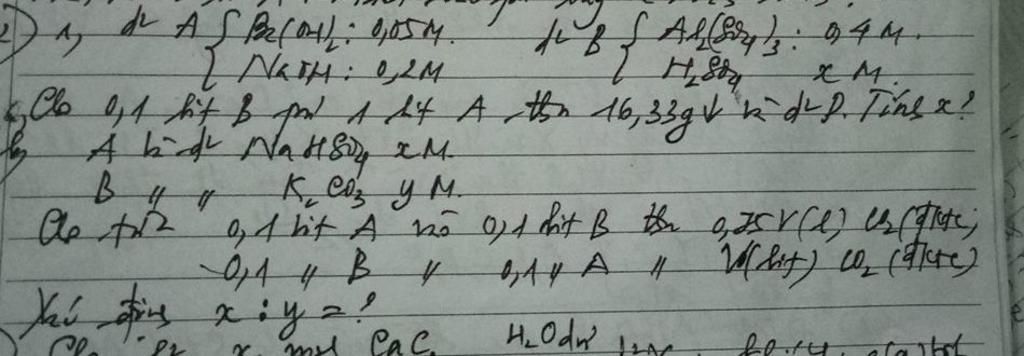 2) 1, dd A { Ba(OH)2: 0,05M. dd B { Al2(SO4)3: 0,4M.
NaOH: 0,2M H2SO4 x M.
Cho 0,1 lít B pứ 1 lít A thu 16,33g↓ và dd D. Tính x?
A là dd NaHSO4 xM.
B " " K2CO3 y M.
Cho từ2 0,1 lít A vào 0,1 lít B thu 0,25V(l) CO2 (đktc)
- 0,1 " B " 0,1 " A " V(lít) CO2 (đktc)
x : y = ?
Cho x CaC H2O dư